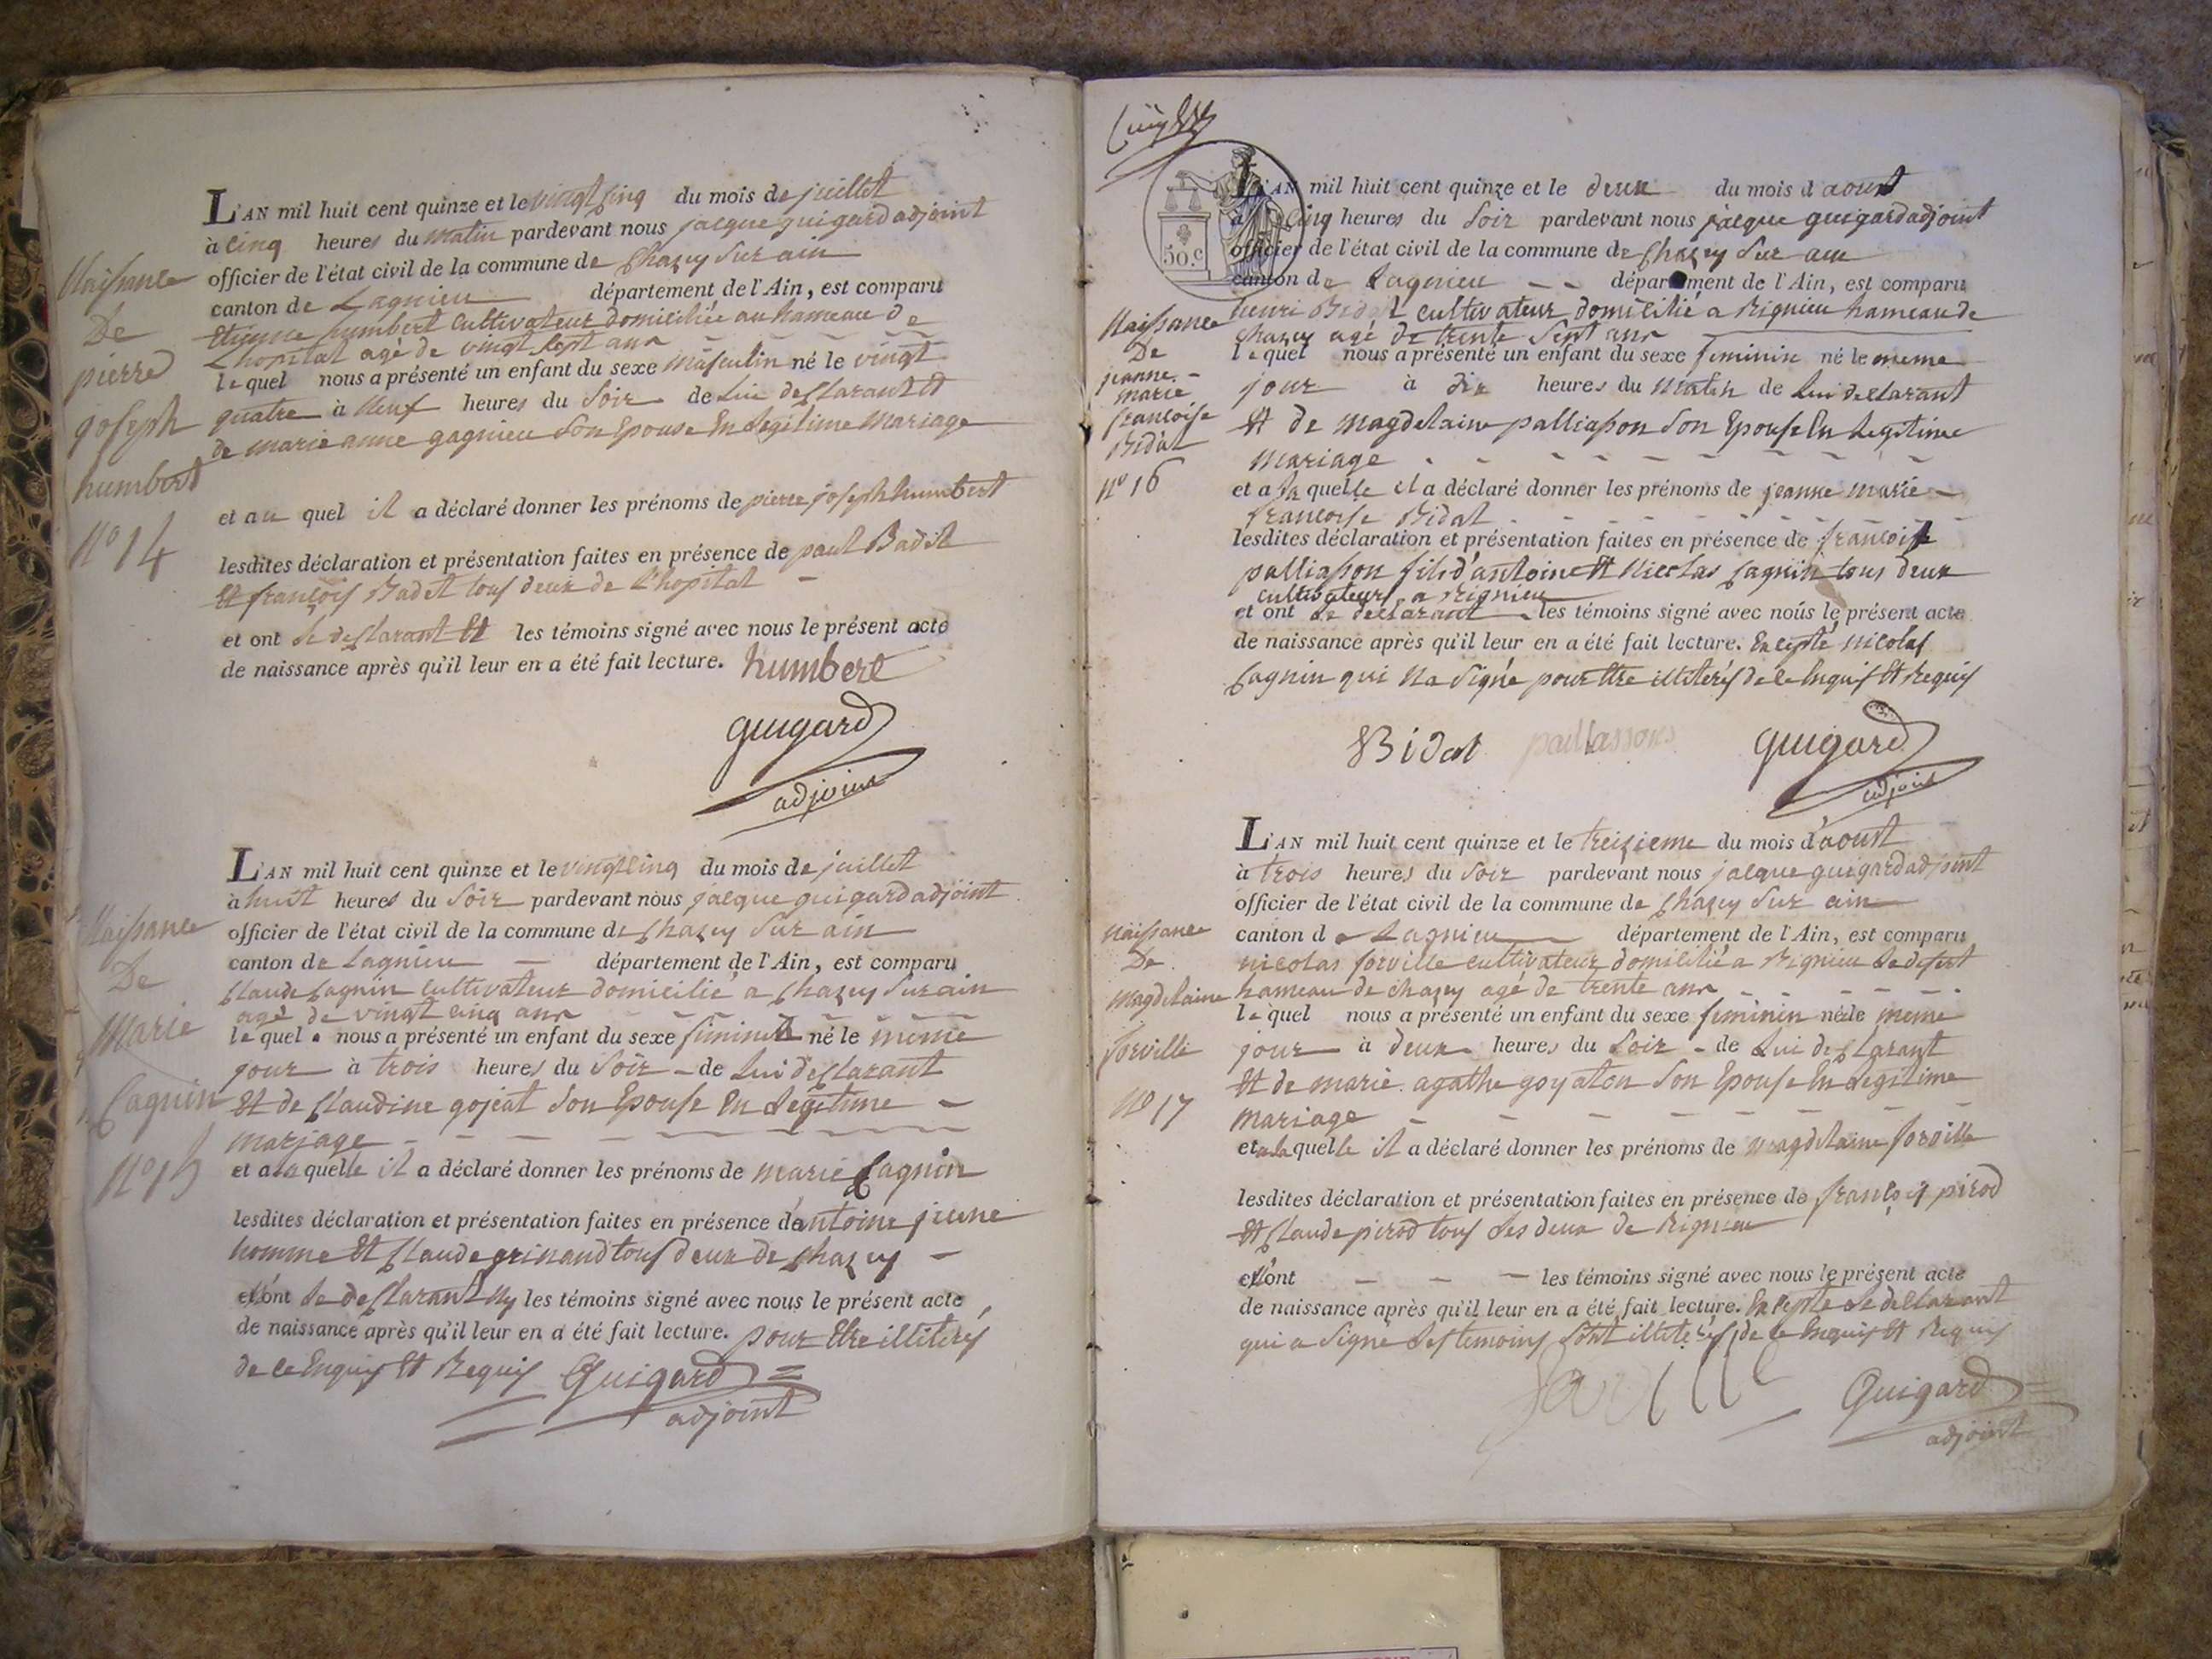 Naissance
De
pierre
joseph
humbert
N° 14
L'AN mil huit cent quinze et le vingt cinq du mois de juillet
à cinq heures du matin pardevant nous jacque guigard adjoint
officier de l'état civil de la commune de Chazey Sur ain
canton de Lagnieu département de l'Ain, est comparu
Etienne humbert cultivateur domicilié au hameau de
L'hopital agé de vingt sept ans
lequel nous a présenté un enfant du sexe masculin né le vingt
quatre à Neuf heures du Soir de Lui declarant et
de marie anne gagnieu Son Epouse En Legitime Mariage
et au quel il a déclaré donner les prénoms de pierre joseph humbert
lesdites déclaration et présentation faites en présence de paul Badit
Et françois Badit tous deux de L'hopital
et ont Le declarant Et les témoins signé avec nous le présent acte
de naissance après qu'il leur en a été fait lecture. humbert
guigard
adjoint
Naissance
De
Marie
Cagnin
N° 15
L'AN mil huit cent quinze et le vingt cinq du mois de juillet
à huit heures du Soir pardevant nous jacque guigard adjoint
officier de l'état civil de la commune de Chazey Sur ain
canton de Lagnieu département de l'Ain, est comparu
Claude Cagnin cultivateur domicilié a Chazey Sur ain
agé de vingt cinq ans
lequel nous a présenté un enfant du sexe feminin né le meme
jour à trois heures du Soir de Lui declarant
Et de Claudine gojeat Son Epouse En Legitime
mariage
et a la quelle il a déclaré donner les prénoms de marie Cagnin
lesdites déclaration et présentation faites en présence d'antoine jeune
homme Et Claude grinand tous deux de Chazey
et n'ont Le declarant Ny les témoins signé avec nous le présent acte
de naissance après qu'il leur en a été fait lecture. pour Etre illiterés
de ce Enquis Et Requis Guigard
adjoint
50.c
Naissance
De
jeanne
marie
francoise
Bidat
N° 16
L'AN mil huit cent quinze et le deux du mois d'aoust
à cinq heures du Soir pardevant nous jacque guigard adjoint
officier de l'état civil de la commune de Chazey Sur ain
canton de Lagnieu département de l'Ain, est comparu
henri Bidat cultivateur domicilié a Rignieu hameau de
Chazey agé de trente Sept ans
lequel nous a présenté un enfant du sexe feminin né le meme
jour à dix heures du Matin de Lui declarant
Et de magdelaine palliasson Son Epouse En Legitime
Mariage
et a la quelle il a déclaré donner les prénoms de jeanne marie
francoise Bidat
lesdites déclaration et présentation faites en présence de francois
palliasson fils d'antoine Et Nicolas Cagnin tous deux
cultivateurs a Rignieu
et ont Le declarant les témoins signé avec nous le présent acte
de naissance après qu'il leur en a été fait lecture. Excepté Nicolas
Cagnin qui Na Signé pour Etre illiterés de ce Enquis Et Requis
Bidat paillassons Guigard
adjoint
Naissance
De
Magdelaine
Sorville
N° 17
L'AN mil huit cent quinze et le treizieme du mois d'aoust
à trois heures du Soir pardevant nous jacque guigard adjoint
officier de l'état civil de la commune de Chazey Sur ain
canton de Lagnieu département de l'Ain, est comparu
nicolas Sorville cultivateur domicilié a Rignieu Le desert
hameau de chazey agé de trente ans
lequel nous a présenté un enfant du sexe feminin né le meme
jour à deux heures du Soir de Lui declarant
Et de marie agathe goyaton Son Epouse En Legitime
mariage
et a la quelle il a déclaré donner les prénoms de magdelaine Sorville
lesdites déclaration et présentation faites en présence de françois pirod
Et Claude pirod tous Les deux de Rignieu
et n'ont les témoins signé avec nous le présent acte
de naissance après qu'il leur en a été fait lecture. Excepté Le declarant
qui a Signé Les temoins Sont illiterés de ce Enquis Et Requis
Guigard
adjoint